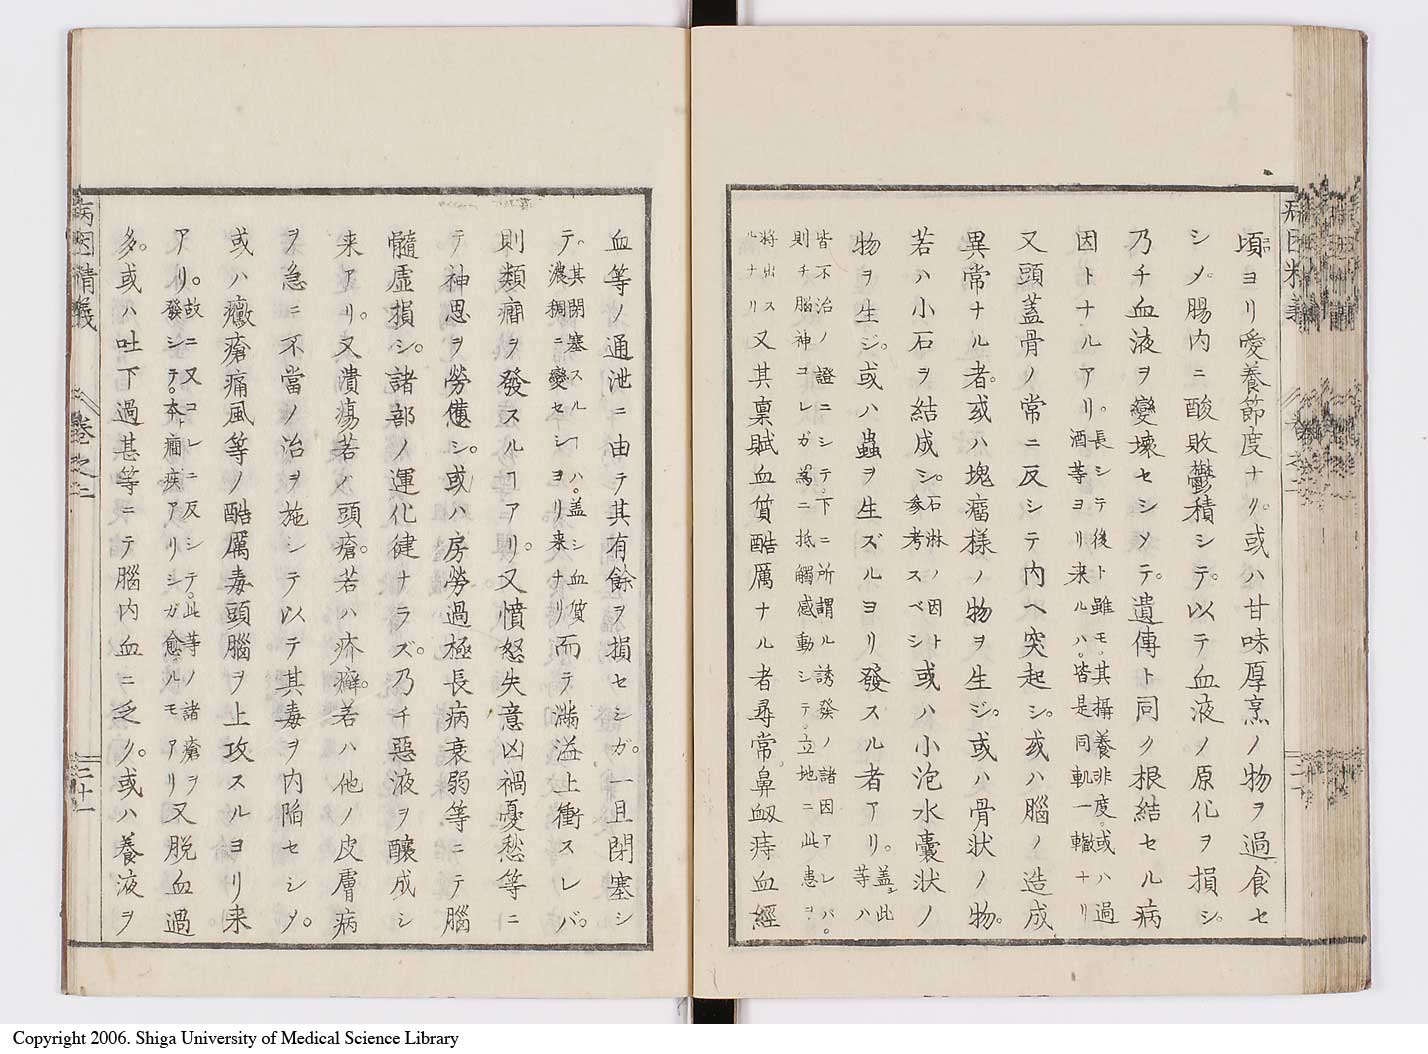 頃ヨリ愛養節度ナク。或ハ甘味厚烹ノ物ヲ過食セ
シメ。腸内ニ酸敗鬱積シテ。以テ血液ノ原化ヲ損シ。
乃チ血液ヲ變壊セシメテ。遺傳ト同ク根結セル病
因トナルアリ。長シテ後ト雖モ。其攝養非度。或ハ過
酒等ヨリ来ルハ。皆是同軌一轍ナリ
又頭蓋骨ノ常ニ反シテ内ヘ突起シ。或ハ腦ノ造成
異常ナル者。或ハ塊瘤様ノ物ヲ生ジ。或ハ骨状ノ物。
若ハ小石ヲ結成シ。石淋ノ因ト
参考スベシ
或ハ小泡水嚢状ノ
物ヲ生ジ。或ハ蟲ヲ生ズルヨリ發スル者アリ。蓋シ此
等ハ
皆不治ノ證ニシテ。下ニ所謂ル誘發ノ諸因アレバ。
則チ腦神コレガ為ニ抵觸感動シテ。立地ニ此患ヲ
將出ス
ルナリ
又其稟賦血質酷厲ナル者尋常鼻衂痔血經
病因精義
血等ノ通泄ニ由テ其有餘ヲ損セシガ。一旦閉塞シ
テ。其閉塞スルトハ。蓋シ血質
濃稠ニ變セシヨリ来ナリ
而テ満溢上衝スレバ。
則類癇ヲ發スルヿアリ。又憤怒失意凶禍憂愁等ニ
テ神思ヲ勞憊シ。或ハ房勞過極長病衰弱等ニテ腦
髓虚損シ。諸部ノ運化健ナラズ。乃チ惡液ヲ釀成シ
来アリ。又潰瘍若ハ頭瘡。若ハ疥癬。若ハ他ノ皮膚病
ヲ急ニ不當ノ治ヲ施シテ以テ其毒ヲ内陥セシメ。
或ハ黴瘡痛風等ノ酷厲毒頭腦ヲ上攻スルヨリ来
アリ。故ニ又コレニ反シテ。此等ノ諸瘡ヲ
發シテ。本癇疾アリシガ愈ルモアリ
又脱血過
多。或ハ吐下過甚等ニテ腦内血ニ乏ク。或ハ養液ヲ
病因精義
巻之二
三十一
Copyright 2006. Shiga University of Medical Science Library